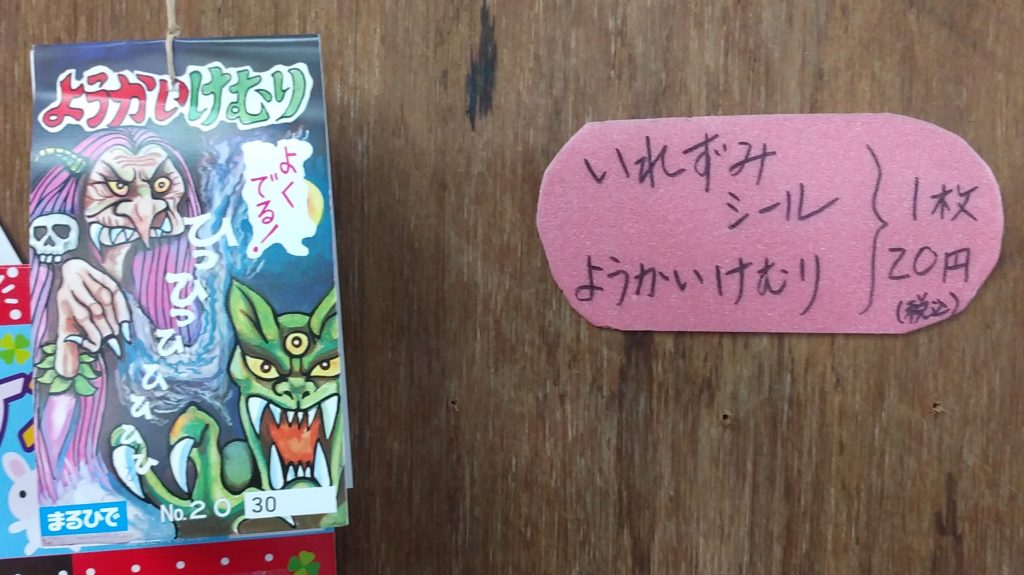 ようかいけむり
よく
でる！
ひっ
ひっ
ひ
ひ
ひ
ひ
ひ
まるひで
No.20
30
いれずみ
シール
ようかいけむり
1枚
20円
(税込)